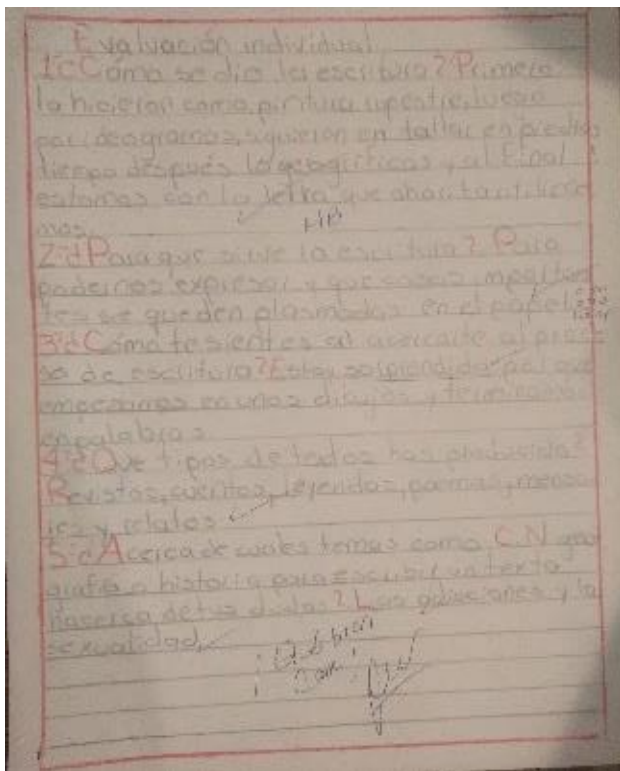 Evaluación individual
1-¿Cómo se dio la escritura? Primero
la hicieron como pintura rupestre, luego
por ideogramas, siguieron en tallar en piedra
tiempo después y al final
estamos con la letra que ahorita utiliza
mos.
MB
2-¿Para que sirve la escritura? Para
podernos expresar y que cosas importan
tes se queden plasmadas en el papel.
3-¿Cómo te sientes al acercarte al proce
so de escritura? Estoy sorprendida por que
empezamos en unos dibujos y terminamos
en palabras
4-¿Que tipos de textos has producido?
Revistas, cuentos, leyendas, poemas, mensa
jes y relatos
5-¿Acerca de cuales temas como C.N geo
grafía o historia para escribir un texto
hacerca de tus dudas? Las galaxias y la
sexualidad